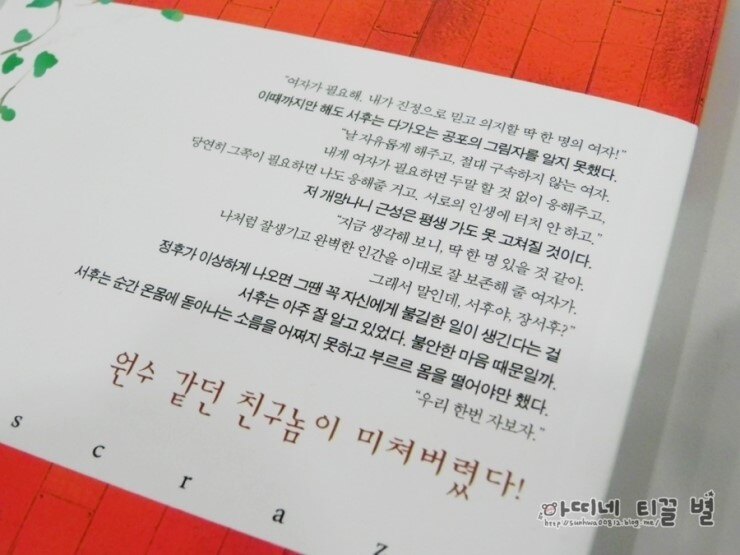 "여자가 필요해. 내가 진정으로 믿고 의지할 딱 한 명의 여자!"
이때까지만 해도 서후는 다가오는 공포의 그림자를 알지 못했다.
"날 자유롭게 해주고, 절대 구속하지 않는 여자.
내게 여자가 필요하면 두말 할 것 없이 응해주고,
당연히 그쪽이 필요하면 나도 응해줄 거고. 서로의 인생에 터치 안 하고."
저 개망나니 근성은 평생 가도 못 고쳐질 것이다.
"지금 생각해 보니, 딱 한 명 있을 것 같아.
나처럼 잘생기고 완벽한 인간을 이대로 잘 보존해 줄 여자가.
그래서 말인데, 서후야, 장서후?"
정후가 이상하게 나오면 그땐 꼭 자신에게 불길한 일이 생긴다는 걸
서후는 아주 잘 알고 있었다. 불안한 마음 때문일까.
서후는 순간 온몸에 돋아나는 소름을 어쩌지 못하고 부르르 몸을 떨어야만 했다.
"우리 한번 자보자."
원수 같던 친구놈이 미쳐버렸다!
s c r a z
아띠네 티끌 별
http://sunhwa00812.blog.me/